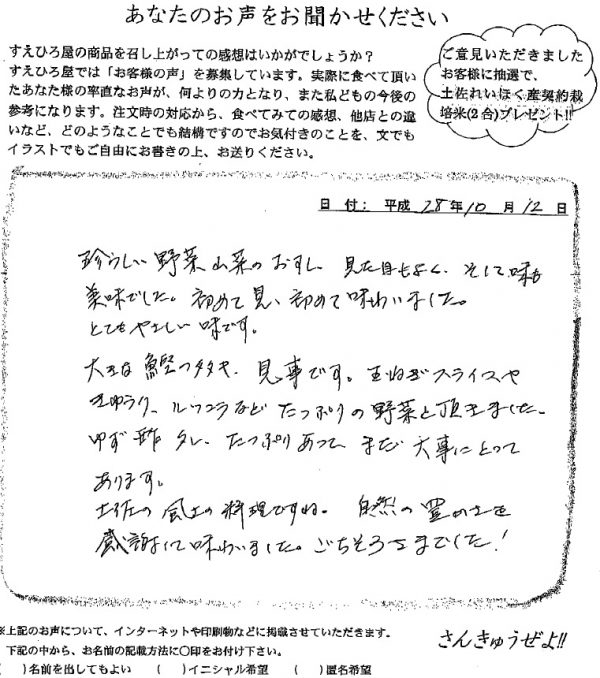 あなたのお声をお聞かせください
すえひろ屋の商品を召し上がっての感想はいかがでしょうか？
すえひろ屋では「お客様の声」を募集しています。実際に食べて頂い
たあなた様の率直なお声が、何よりの力となり、また私どもの今後の
参考になります。注文時の対応から、食べてみての感想、他店との違
いなど、どのようなことでも結構ですのでお気付きのことを、文でも
イラストでもご自由にお書きの上、お送りください。
ご意見いただきました
お客様に抽選で、
土佐れいほく産契約栽
培米(2合)プレゼント!!
日 付： 平成 28年 10 月 12 日
珍らしい野菜山菜のおすし、見た目もよく、そして味も
美味でした。初めて見、初めて味わいました。
とてもやさしい味です。
大きな鰹つタタキ、見事です。玉ねぎスライスや
きゅうり、ルッコラなど たっぷりの野菜と頂きました。
ゆず酢タレ、たっぷりあって、まだ大事にとって
あります。
土佐の風土の料理ですね。自然の豊かさを
感謝して味わいました。ごちそうさまでした！
※上記のお声について、インターネットや印刷物などに掲載させていただきます。
下記の中から、お名前の記載方法に〇印をお付け下さい。
(　)名前を出してもよい　(　)イニシャル希望　(　)匿名希望
さんきゅうぜよ!!